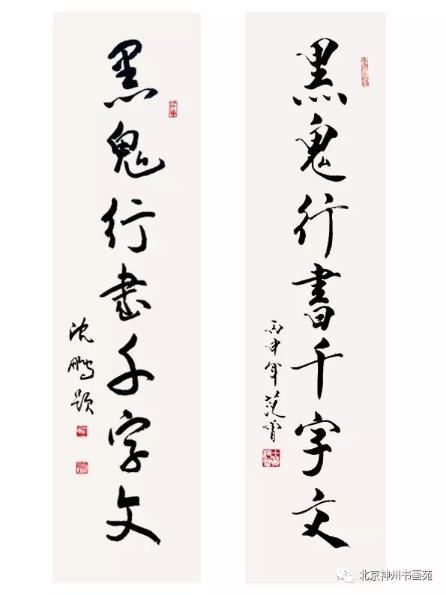 黑鬼行書千字文
丙申年范曾
黑鬼行書千字文
沈鵬題
北京神州书画苑